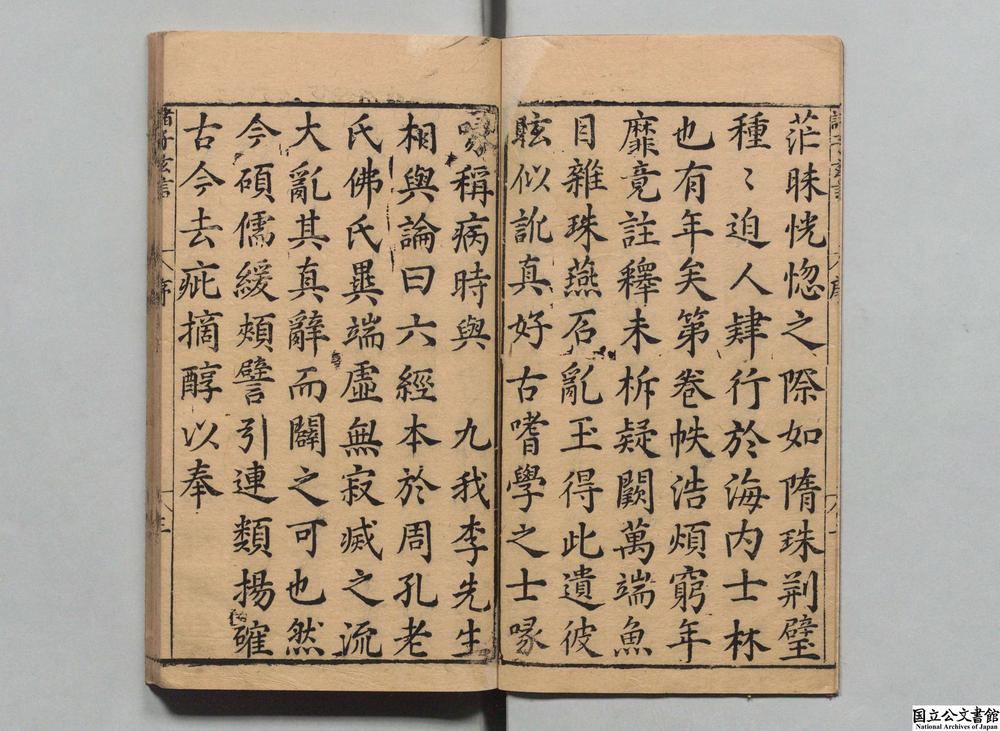 茫昧恍惚之際如隋珠荆璧
種〻迫人肆行於海内士林
也有年矣第卷帙浩煩窮年
靡竟註釋未柝疑闕萬端魚
目雜珠燕石亂玉得此遺彼
眩似訛真好古嗜學之士喙
喙稱病時與　九我李先生
相與論曰六經本於周孔老
氏佛氏異端虛無寂滅之流
大亂其真辭而闢之可也然
今碩儒緩頰譬引連類揚確
古今去疵摘醇以奉
諸子玄言
序
三
国立公文書館
National Archives of Japan